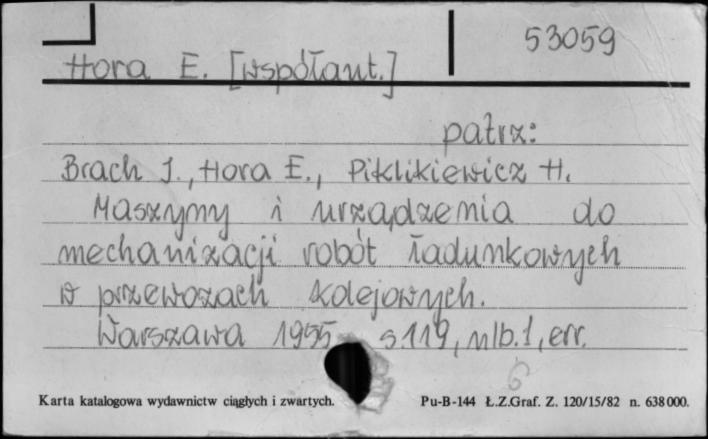 53059
Hora E. [współaut.]
patrz:
Brach J., Hora E., Piklikiewicz H.
Maszyny i urządzenia do
mechanizacji robót ładunkowych
w przewozach kolejowych.
Warszawa 1955 s 119, nlb. 1, err.
6
Karta katalogowa wydawnictw ciągłych i zwartych. Pu-B-144 Ł.Z.Graf. Z. 120/15/82 n. 638 000.